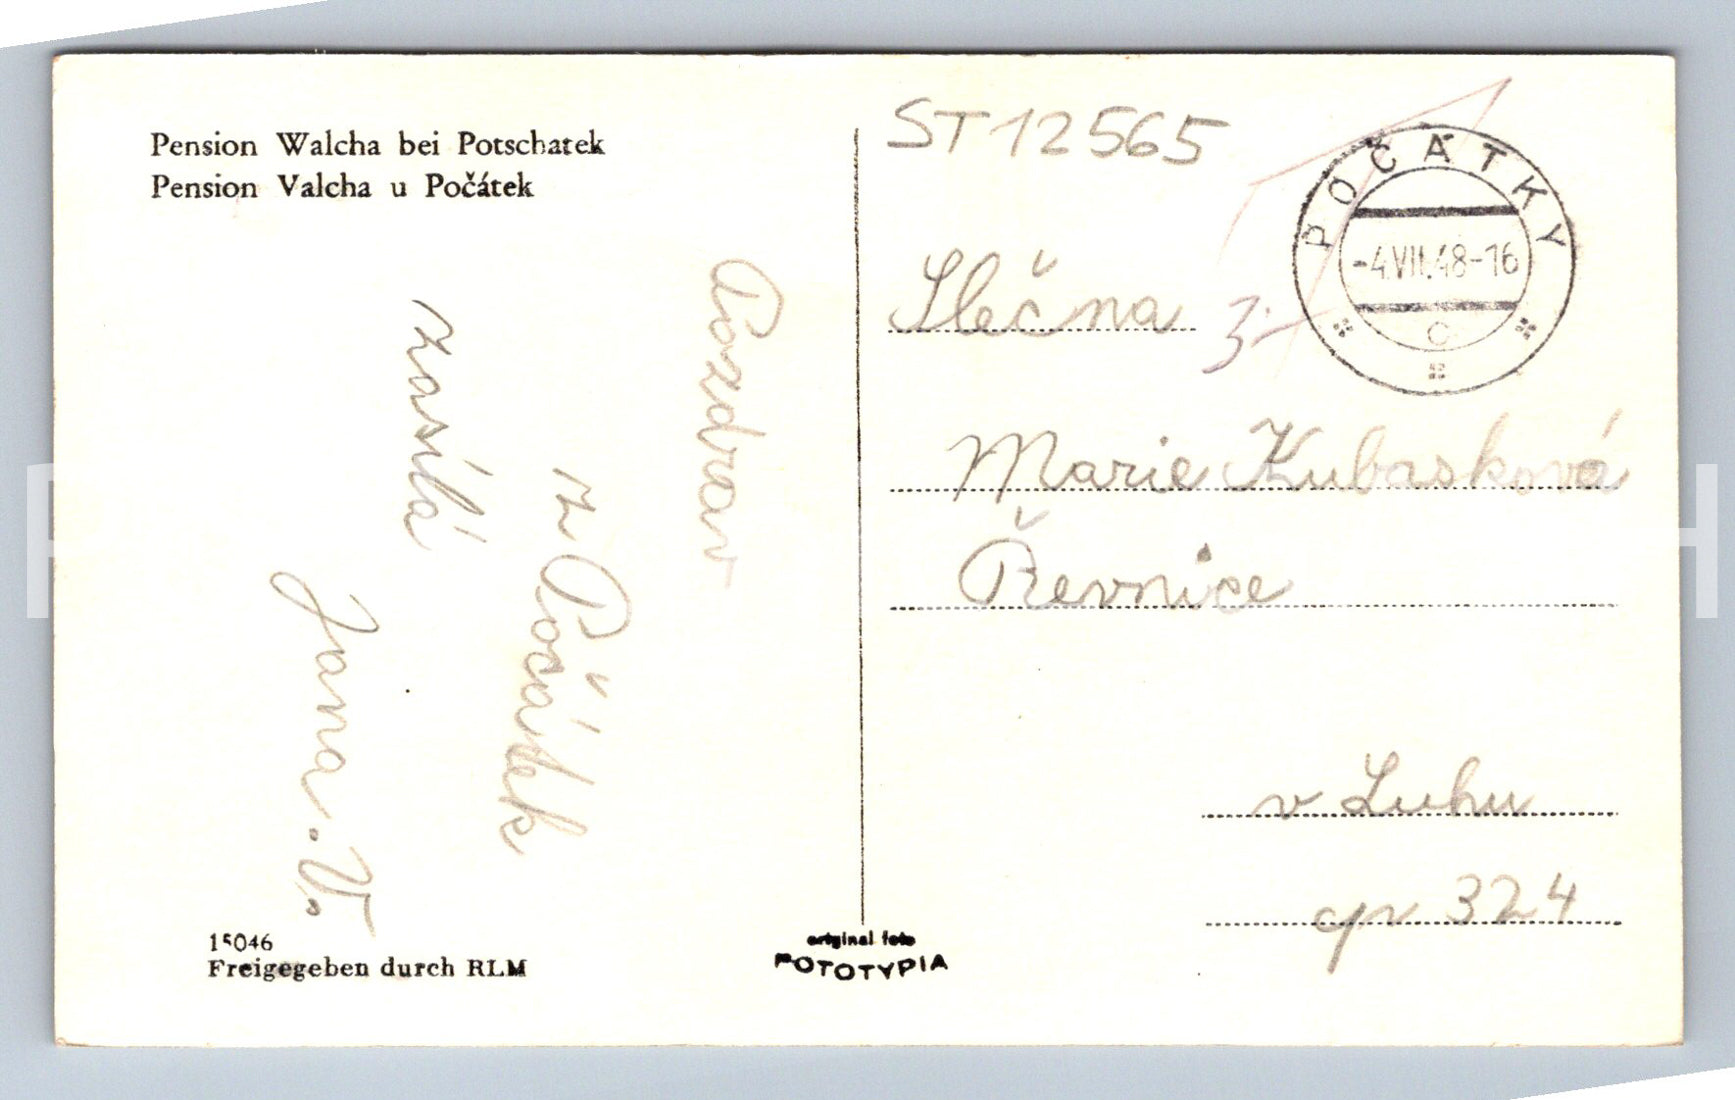 Pension Walcha bei Potschatek
Pension Valcha u Počátek
Pozdrav
z Počátek
zasílá
Jana. V.
15046
Freigegeben durch RLM
original foto
FOTOTYPIA
ST 12565
POČÁTKY
-4.VII.48-16
c
Slečna
3.-
Marie Kubasková
Řevnice
v Luhu
čp 324